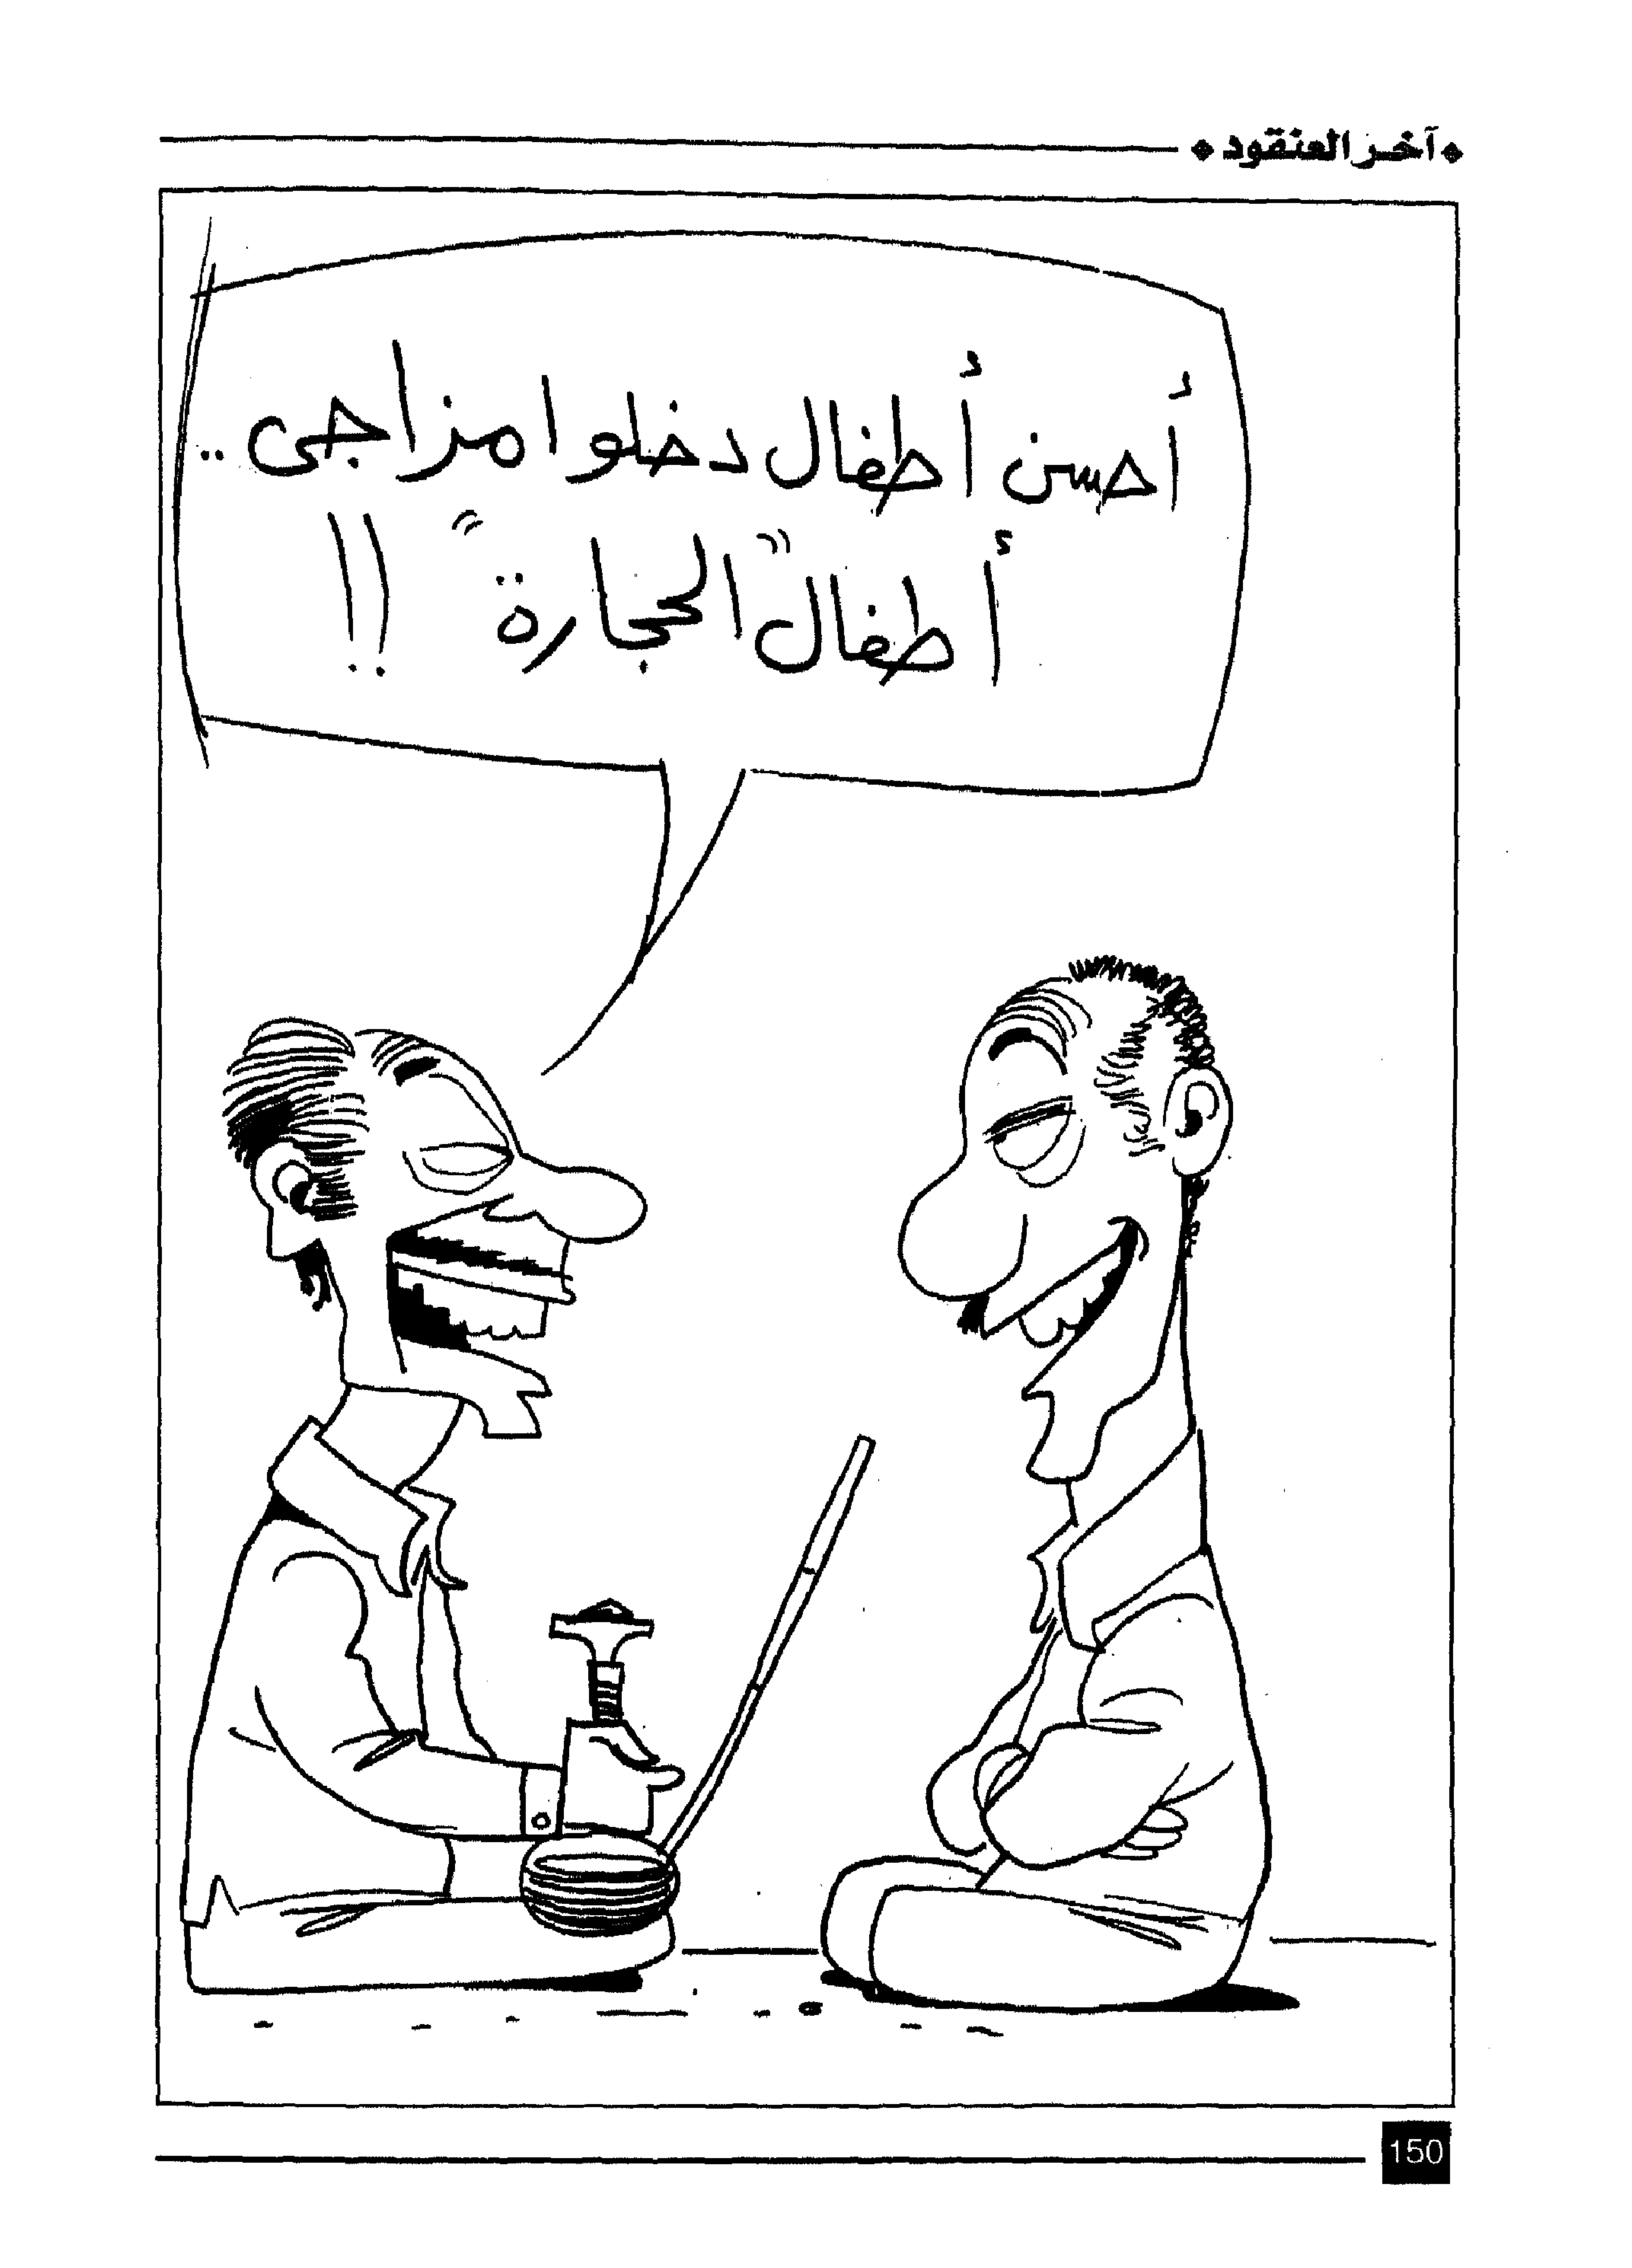 آخر العنقود
أحسن أطفال دخلوا مزاجى ..
أطفال "الحجارة" !!
150